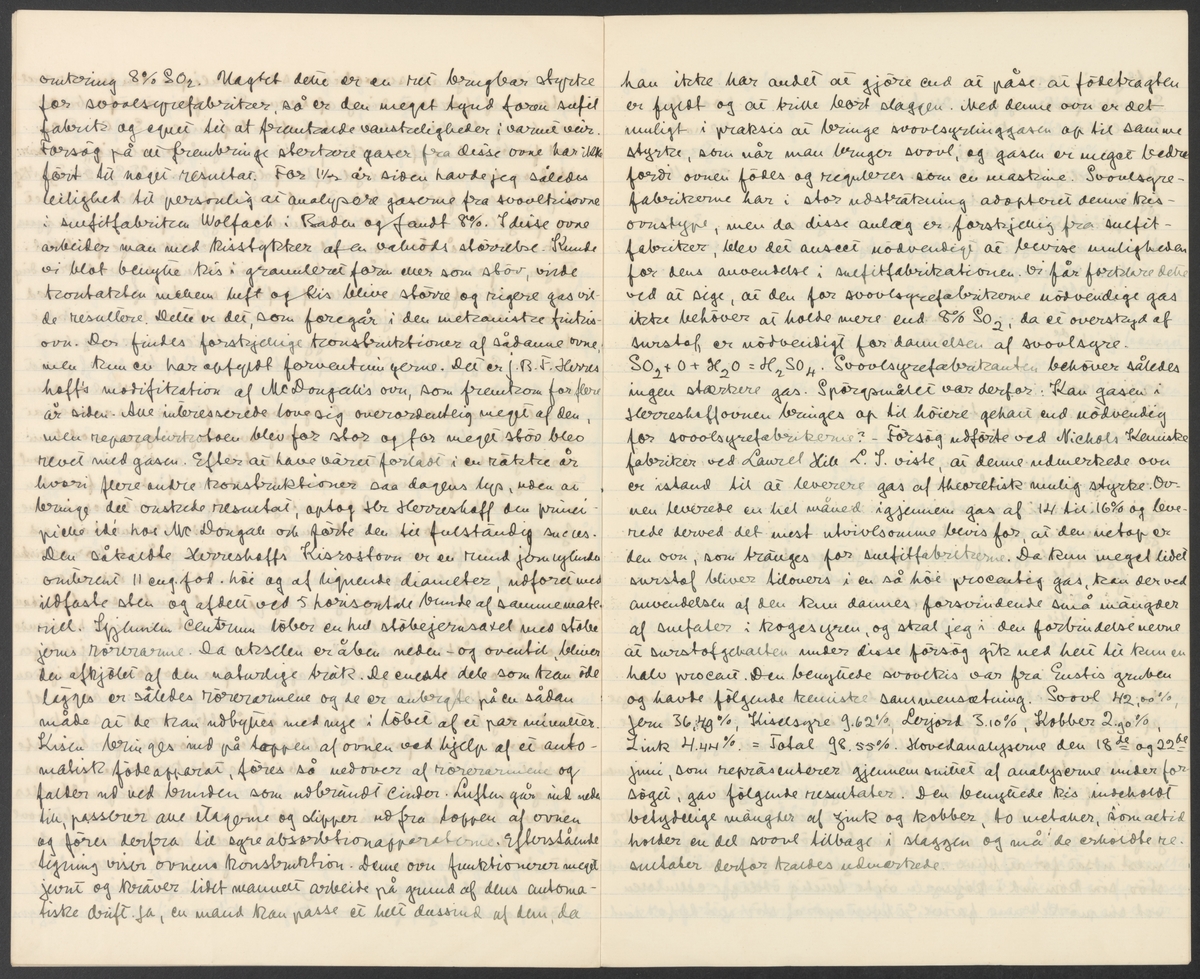 omkring 8% SO2. Uagtet dette er en ret brugbar styrke
for svovlsyrefabriker, så er den meget tynd for en sulfit
fabrik og egnet til at fremkalde vanskeligheder i varmt veir.
Forsøg på at frembringe sterkere gaser fra disse ovne har ikke
ført til noget resultat. For 1½ år siden havde jeg således
leilighed til personlig at analysere gaserne fra svovlkisovne
i sulfitfabriken Wolfach i Baden og fandt 8%. I disse ovne
arbeider man med kisstykker af en valnöds störrelse. Kunde
vi blot benytte kis i granuleret form eller som stöv, vilde
kontakten mellem luft og kis blive större og rigere gas vil-
de resultere. Dette er det, som foregår i den mekaniske finkis-
ovn. Der findes forskjellige konstruktioner af sådanne ovne,
men kun en har opfyldt forventningerne. Det er J.B.F. Herres
hoffs modifikation af McDongalls ovn, som fremkom for flere
år siden. Alle interesserede lovte sig overordentlig meget af den,
men reparaturkontoen blev for stor og for meget stöv blev
revet med gasen. Efter at have väret forladt i en räkke år
hvori flere andre konstruktioner saa dagens lys, uden at
bringe det önskede resultat, optog Hr Herreshoff den princi-
pielle idé hos Mc Dongall och förte den til fulständig succes.
Den såkaldte Herreshoffs Kisrostovn er en rund jerncylinder
omtrent 11 eng. fod. höi og af lignende diameter, udforet med
ildfaste sten og afdelt ved 5 horisontale bunde af samme mate-
riel. Igjennem Centrum löber en hul stöbejernsaxel med stöbe
jerns rörerarme. Da akselen er åben neden- og oventil, bliver
den afkjölet af den naturlige träk. De eneste dele som kan öde
lägges er således rörerarmene og de er anbragte på en sådan
måde at de kan udbyttes med nye i löbet af et par minutter.
Kisen bringes ind på toppen af ovnen ved hjelp af et auto-
matisk födeapparat, föres så nedover af rörerarmene og
falder ud ved bunden som udbrändt Cinder. Luften går ind neden
til, passerer alle etagerne og slipper ud fra toppen af ovnen
og föres derfra til syreabsorbtionapparaterne. Efterstående
tegning viser ovnens konstruktion. Denne ovn funktionerer meget
jevnt og kräver lidet manuelt arbeide på grund af dens automa-
tiske drift. Ja, en mand kan passe et helt dussind af dem, da
han ikke har andet at gjöre end at påse at födetragten
er fyldt og at trille bort slaggen. Med denne ovn er det
muligt i praksis at bringe svovlsyrlinggasen op til samme
styrke, som når man bruger svovl, og gasen er meget bedre
fordi ovnen födes og reguleres som en maskine. Svovlsyre-
fabrikerne har i stor udsträkning adopteret denne kis-
ovnstype, men da disse anlæg er forskjellig fra sulfit-
fabriker, blev det anseet nödvendigt at bevise muligheden
for dens anvendelse i sulfitfabrikationen. Vi får forklare dette
ved at sige, at den for svovlsyrefabrikerne nödvendige gas
ikke behöver at holde mere end 8% SO2, da et overskud af
surstof er nödvendigt for dannelsen af svovlsyre.
SO2 + O + H2O = H2SO4. Svovlsyrefabrikanten behöver således
ingen stærkere gas. Spörgsmålet var derfor: Kan gasen i
Herreshoffovnen bringes op til höiere gehalt end nödvendig
for svovlsyrefabrikerne? - Försög udförte ved Nichols Kemiske
fabriker ved Laurel Hill L. I. viste, at denne udmerkede ovn
er istand til at levere gas af theoretisk mulig styrke. Ov-
nen leverede en hel måned igjennem gas af 14 til 16% og leve-
rede derved det mest utvivlsomme bevis for, at den netop er
den ovn, som tränges for sulfitfabrikerne. Da kun meget lidet
surstof bliver tilovers i en så höi procentig gas, kan der ved
anvendelsen af den kun dannes forsvindende små mängder
af sulfater i kogesyren, og skal jeg i den forbindelse nevne
at surstofgehalten under disse försög gik ned helt til kun en
halv procent. Den benyttede svovlkis var fra Eustis gruben
og havde fölgende kemiske sammensætning. Svovl 42,00%,
Jern 36,49%, Kiselsyre 9.62%, Lerjord 3.10%, Kobber 2.90%,
Zink 4.44%. = Total 98.55%. Hovedanalyserne den 18de og 22de
juni, som repräsenterer gjennemsnittet af analyserne under for-
söget, gav fölgende resultater. Den benyttede kis indeholdt
betydelige mängder af Zink og kobber, to metaller, som altid
holder en del svovl tilbage i slaggen og må de erholdte re-
sultater derfor kaldes udmerkede.